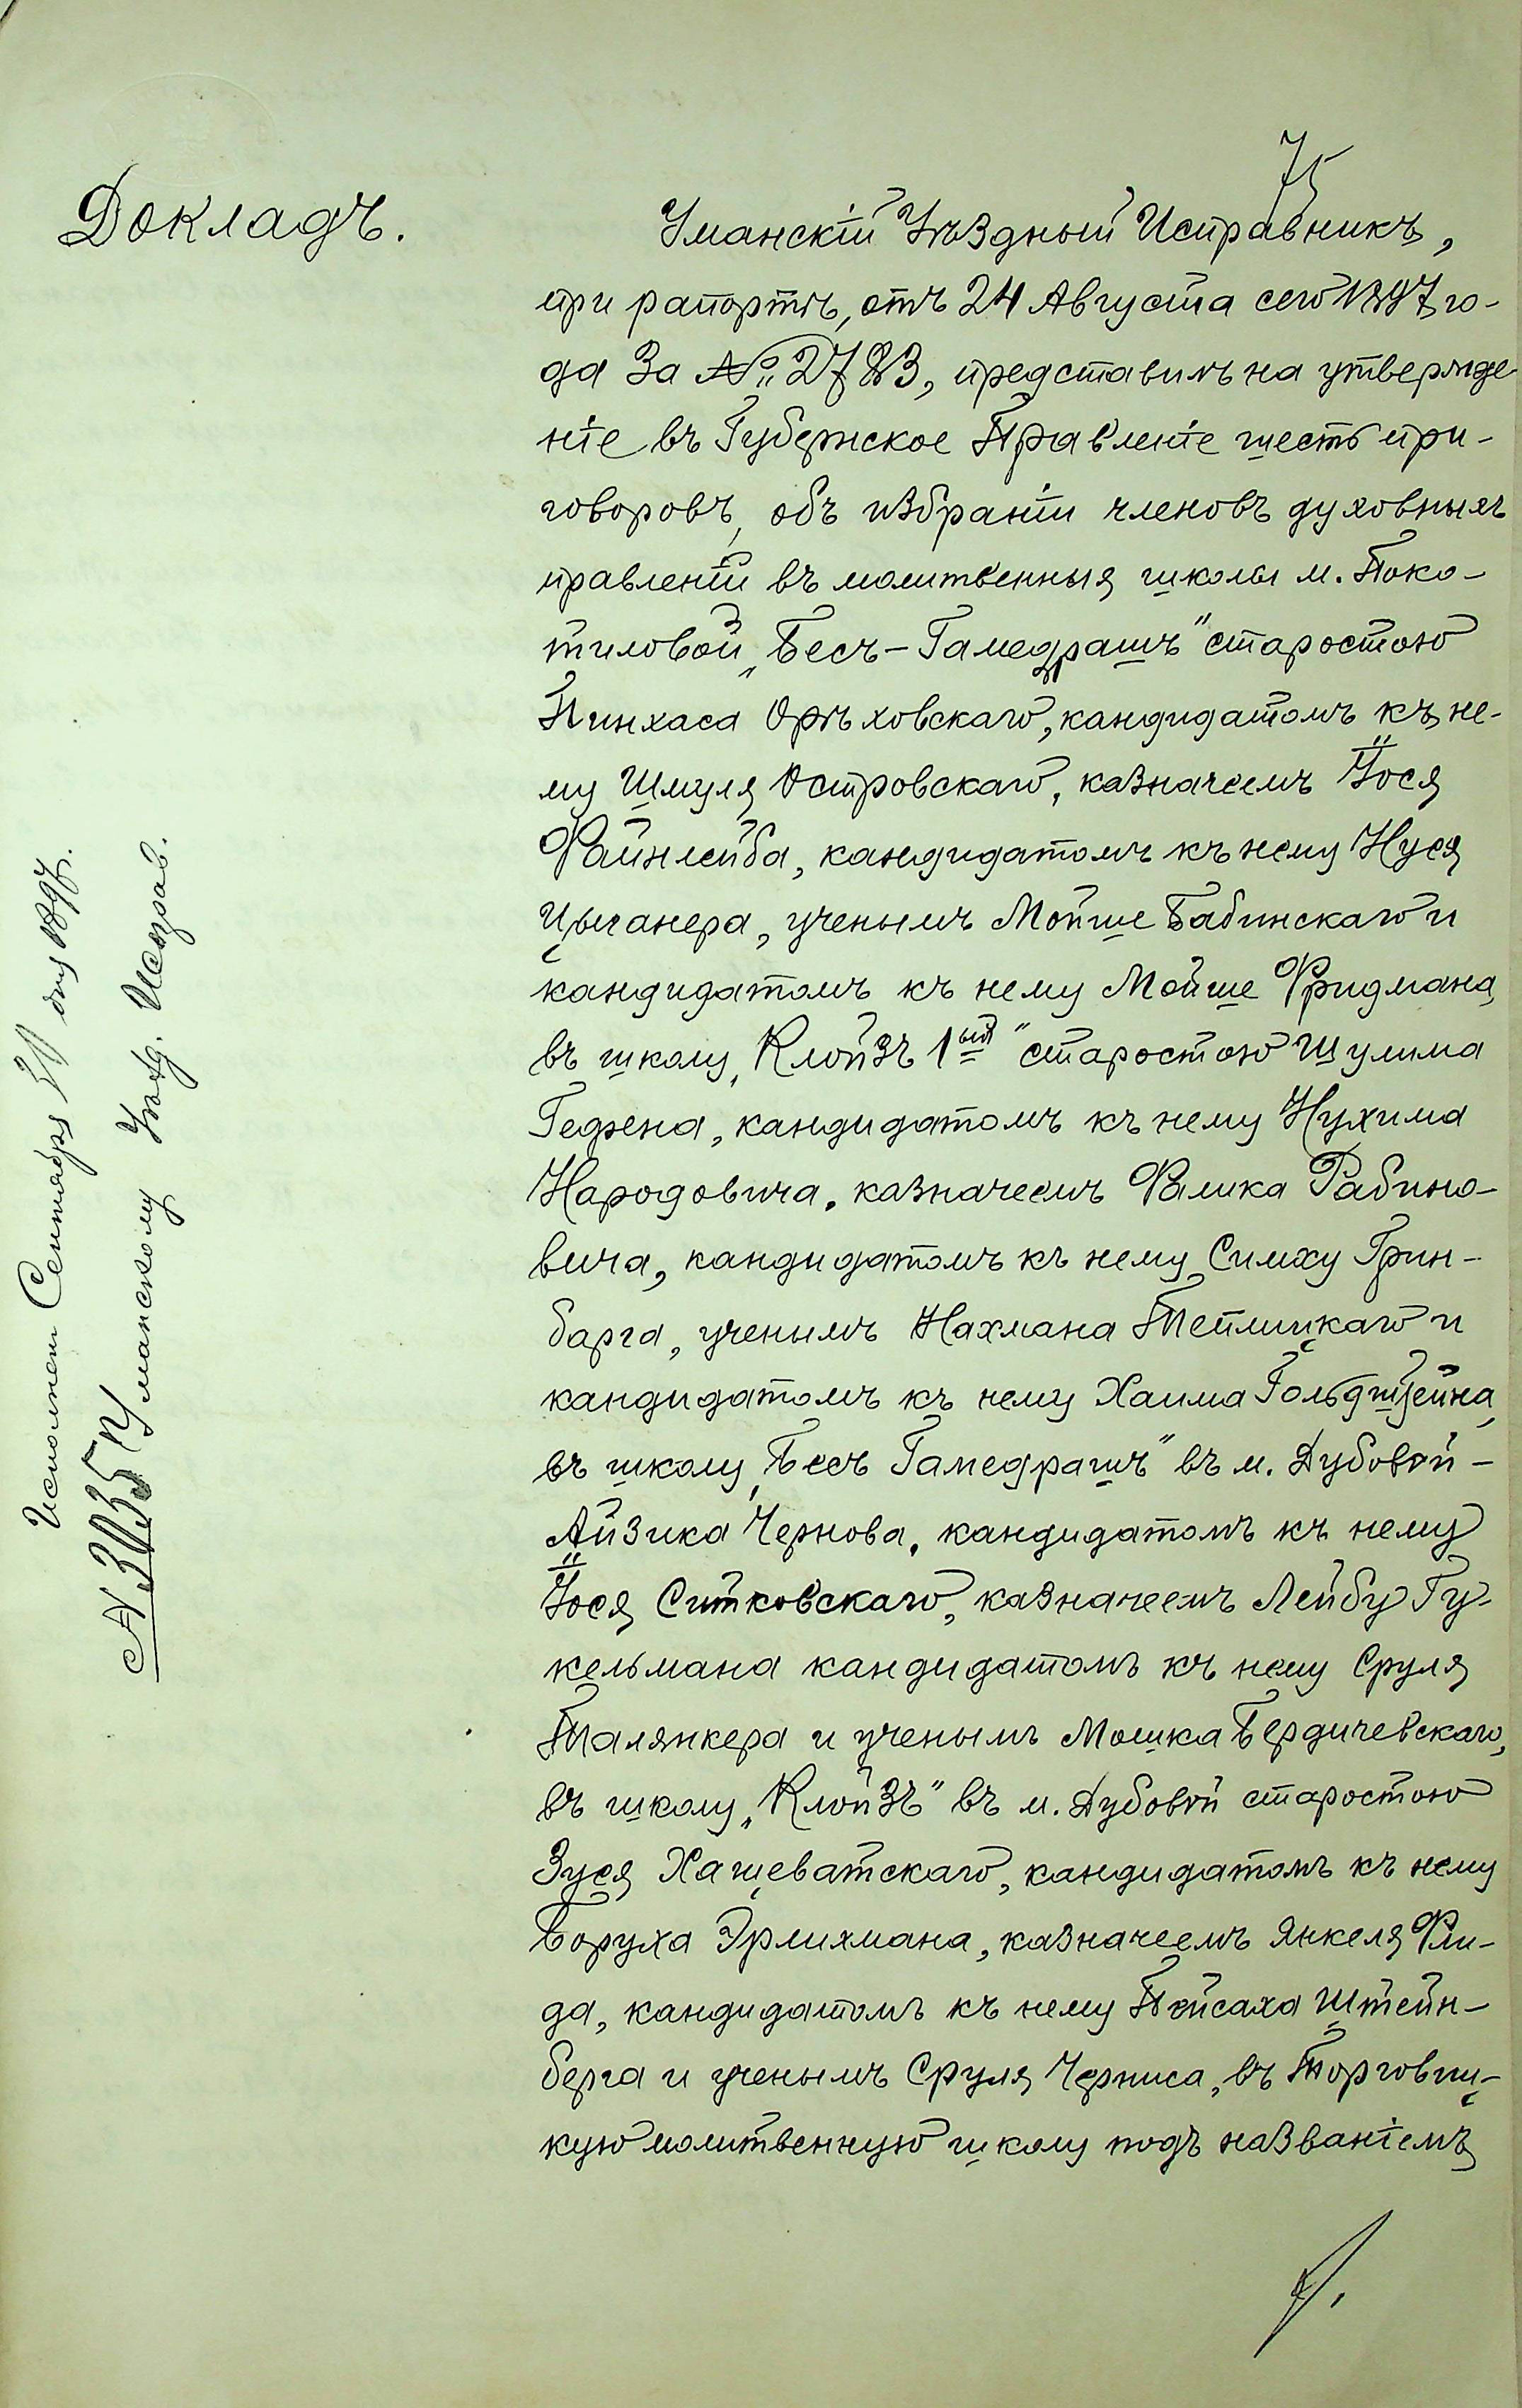 75
Докладъ.
Уманскій Уѣздный Исправникъ,
при рапортѣ, отъ 24 Августа сего 1897 го-
да за № 2783, представилъ на утвержде
ніе въ Губернское Правленіе шесть при-
говоровъ, объ избраніи членовъ духовныхъ
правленій въ молитвенныя школы м. Поко-
тиловой „Бесъ-Гамедрашъ" старостою
Пинхаса Орѣховскаго, кандидатомъ къ не-
му Шмуля Островскаго, казначеемъ Іося
Файнлейба, кандидатомъ къ нему Нуся
Цыганера, ученымъ Мойше Бабинскаго и
кандидатомъ къ нему Мойше Фридмана,
въ школу „Клойзъ 1ый" старостою Шулима
Гефена, кандидатомъ къ нему Нухима
Народовича, казначеемъ Фалика Рабино-
вича, кандидатомъ къ нему Симху Грин-
барга, ученымъ Нахмана Теплицкаго и
кандидатомъ къ нему Хаима Гольдштейна,
въ школу „Бесъ Гамедрашъ" въ м. Дубовой -
Айзика Чернова, кандидатомъ къ нему
Іося Ситковскаго, казначеемъ Лейбу Гу-
кельмана кандидатомъ къ нему Сруля
Талянкера и ученымъ Мошка Бердичевскаго,
въ школу „Клойзъ" въ м. Дубовой старостою
Зуся Хащеватскаго, кандидатомъ къ нему
Боруха Эрлихмана, казначеемъ Янкеля Фли-
да, кандидатомъ къ нему Пейсаха Штейн-
берга и ученымъ Сруля Черниса, въ Торговиц-
кую молитвенную школу подъ названіемъ
Исполнен Сентября 30 дня 1897 г.
№ 3035 Уманскому Уѣзд. Исправ.